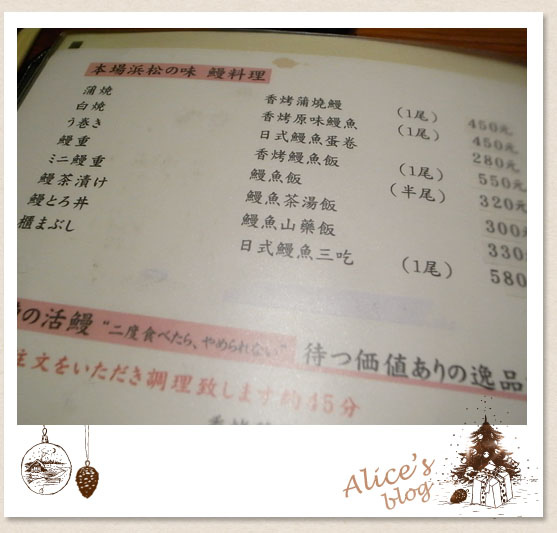 本場浜松の味 鰻料理
蒲焼 香烤蒲燒鰻 (1尾) 450元
白焼 香烤原味鰻魚 (1尾) 450元
う巻き 日式鰻魚蛋卷 280元
鰻重 香烤鰻魚飯 (1尾) 550元
ミニ鰻重 鰻魚飯 (半尾) 320元
鰻茶漬け 鰻魚茶湯飯 300元
鰻とろ丼 鰻魚山藥飯 330
櫃まぶし 日式鰻魚三吃 (1尾) 580
の活鰻 "二度食べたら、やめられない" 待つ価値ありの逸品
注文をいただき調理致します約45分
Alice's
blog